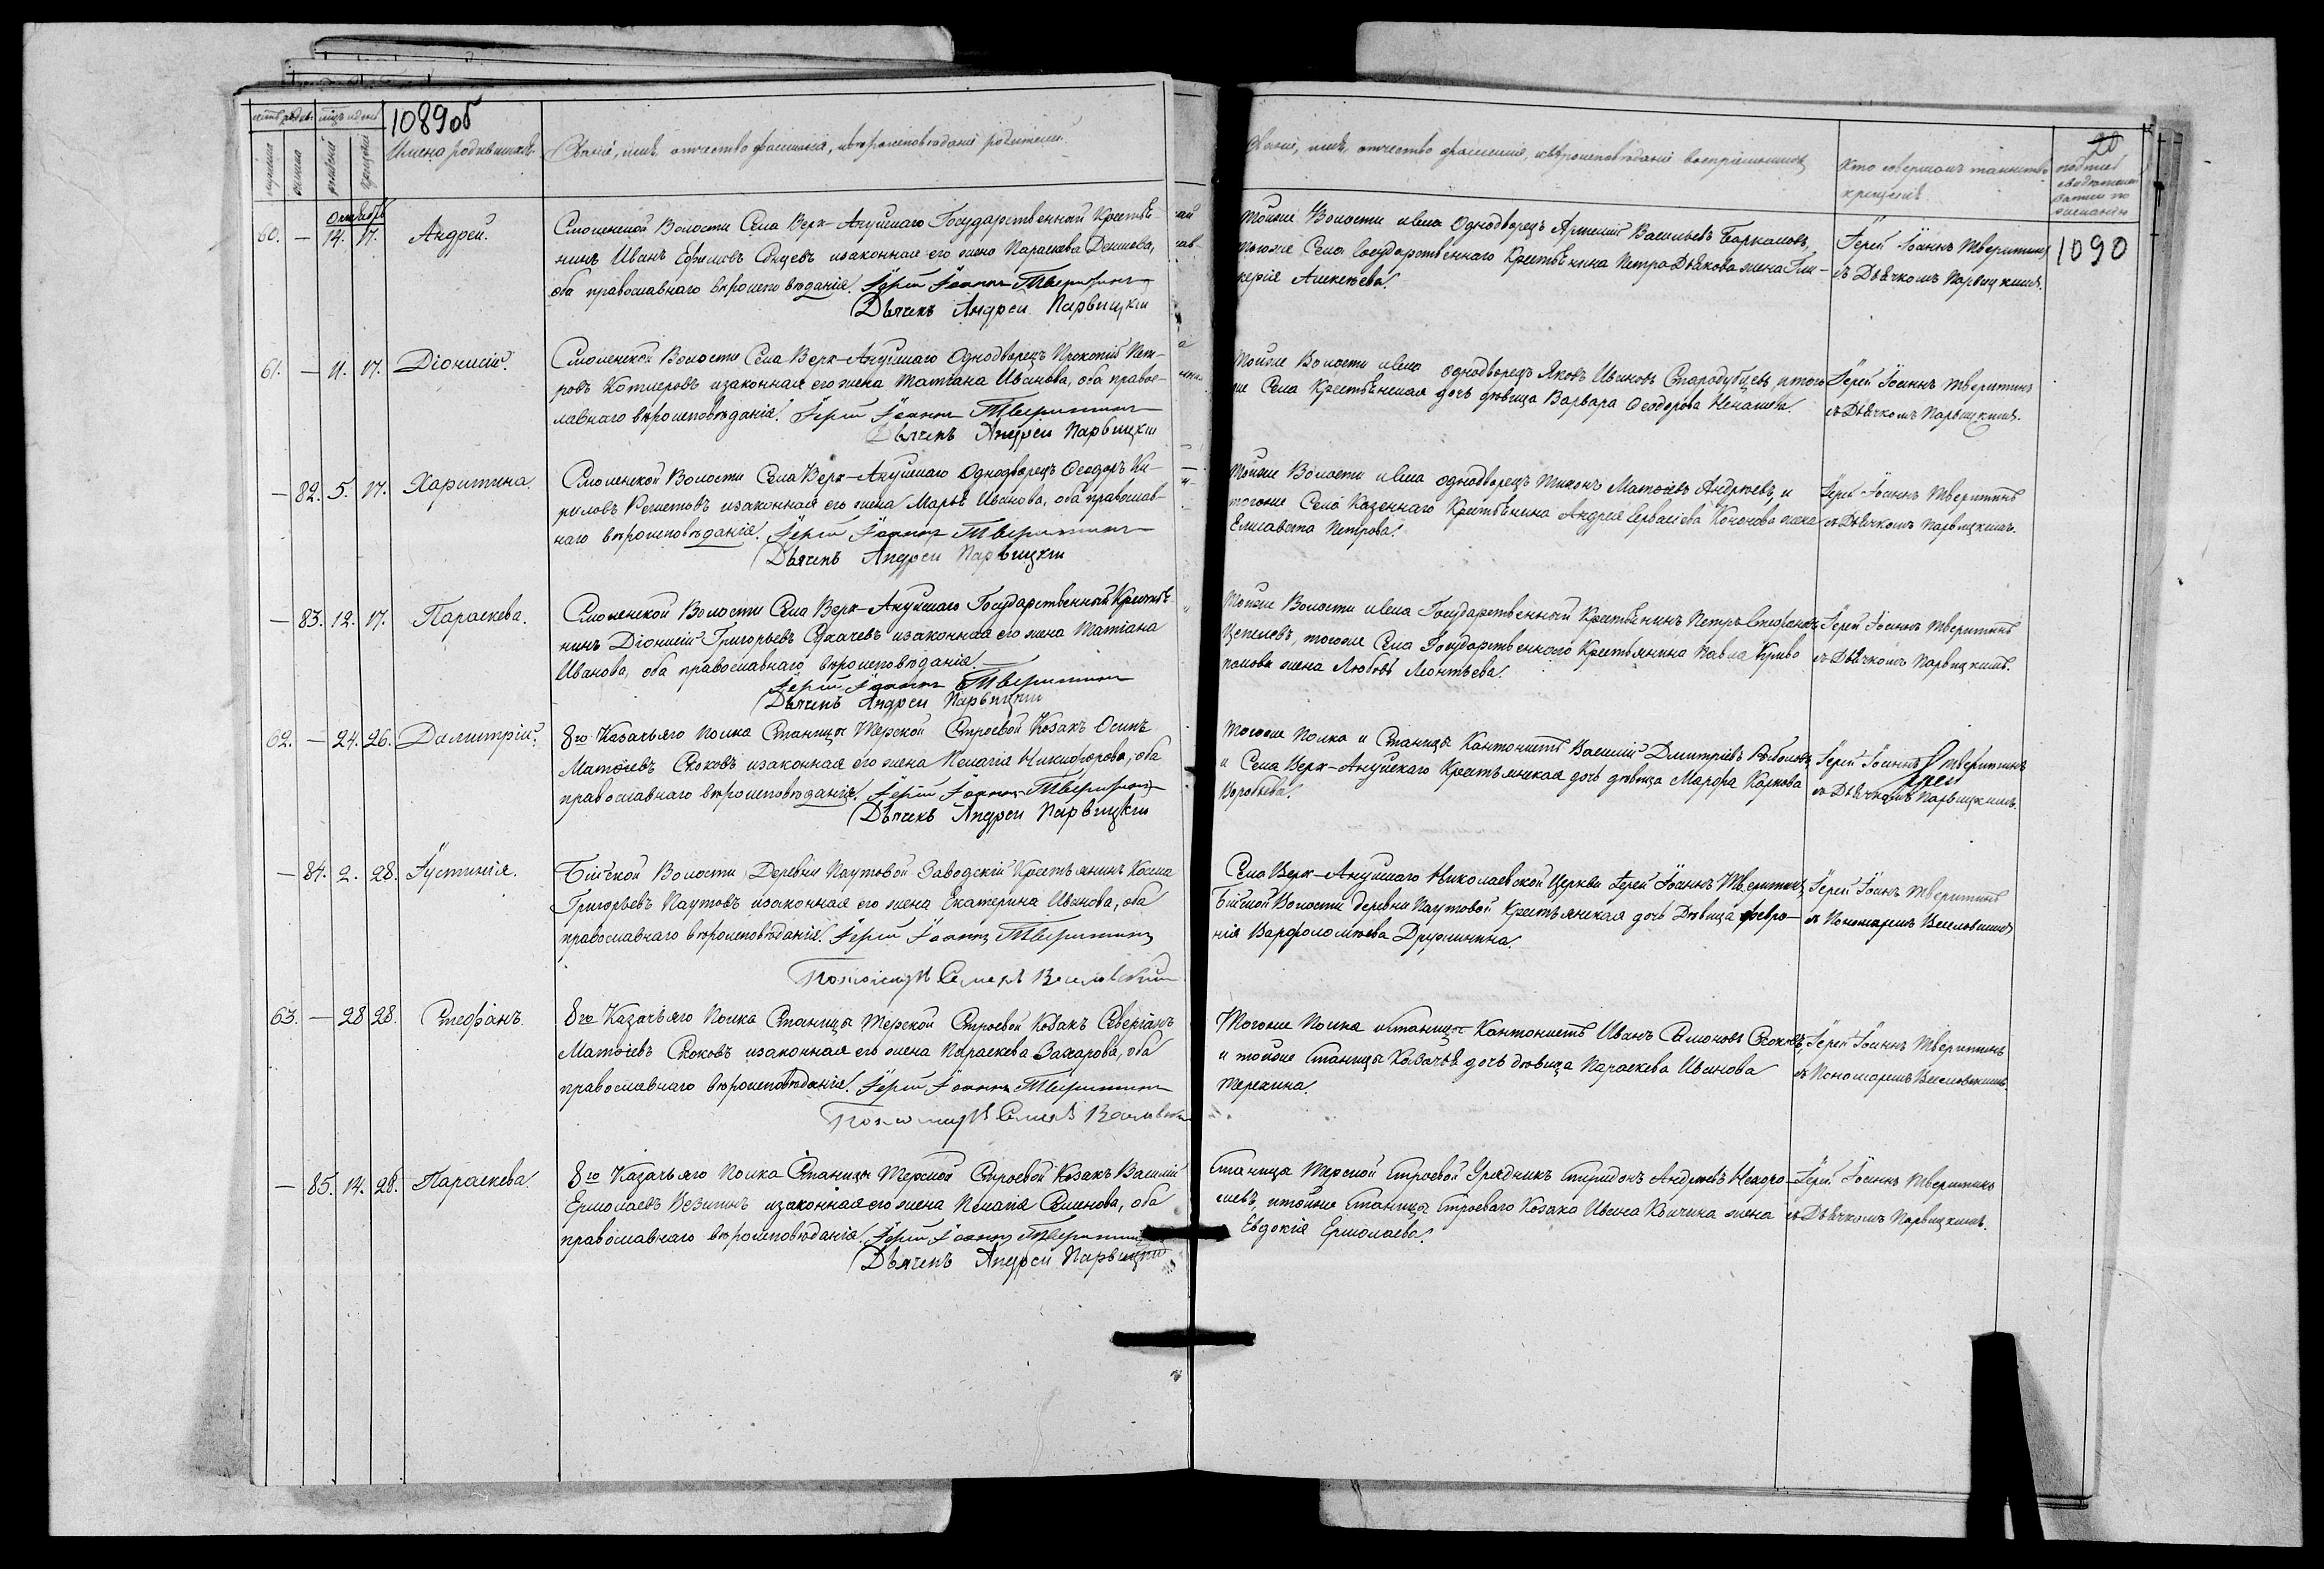 1089об
Имена родившихся.
Званіе, имя, отчество и фамилія, и вѣроисповѣданіе родителей.
Октябрь
60. — 14. 17. Андрей.
Смоленской Волости Села Верх-Ануйскаго Государственный Крестья-
нинъ Иванъ Ефимовъ и законная его жена Параскева
оба православнаго вѣроисповѣданія. Іерей Іоаннъ Тверитинъ
Дьячекъ Андрей Парвицкій
61. — 11. 17. Діонисій.
Смоленской Волости Села Верх-Ануйскаго Однодворецъ Прокопій Пет-
ровъ Котлеровъ и законная его жена Матіана Иванова, оба правос-
лавнаго вѣроисповѣданія. Іерей Іоаннъ Тверитинъ
Дьячекъ Андрей Парвицкій
— 82. 5. 17. Харитина.
Смоленской Волости Села Верх-Ануйскаго Однодворецъ Ѳеодоръ Ки-
риловъ Решетовъ и законная его жена Марья Иванова, оба православ-
наго вѣроисповѣданія. Іерей Іоаннъ Тверитинъ
Дьячекъ Андрей Парвицкій
— 83. 12. 17. Параскева.
Смоленской Волости Села Верх-Ануйскаго Государственный Крестья-
нинъ Діонисій Григорьевъ и законная его жена Матіана
Иванова, оба православнаго вѣроисповѣданія.
Іерей Іоаннъ Тверитинъ
Дьячекъ Андрей Парвицкій
62. — 24. 26. Димитрій.
8го Казачьяго Полка Станицы Терской Строевой Козакъ Осипъ
Матѳіевъ Скоковъ и законная его жена Пелагія Никифорова, оба
православнаго вѣроисповѣданія. Іерей Іоаннъ Тверитинъ
Дьячекъ Андрей Парвицкій
— 84. 2. 28. Іустинія.
Бійской Волости Деревни Паутовой Заводскій Крестьянинъ Косма
Григорьевъ Паутовъ и законная его жена Екатерина Иванова, оба
православнаго вѣроисповѣданія. Іерей Іоаннъ Тверитинъ
Пономарь Веселовскій
63. — 28 28. Стефанъ.
8го Казачьяго Полка Станицы Терской Строевой Козакъ Севергіанъ
Матѳіевъ Скоковъ и законная его жена Параскева Захарова, оба
православнаго вѣроисповѣданія. Іерей Іоаннъ Тверитинъ
Пономарь
— 85. 14. 28. Параскева.
8го Казачьяго Полка Станицы Терской Строевой Козакъ Василій
Ермолаевъ и законная его жена Пелагія Семенова, оба
православнаго вѣроисповѣданія. Іерей Іоаннъ Тверитинъ
Дьячекъ Андрей Парвицкій
Званіе, имя, отчество и фамилія, и вѣроисповѣданіе воспріемниковъ
Кто совершалъ таинство
крещенія
20
1090
Тойже Волости и Села Однодворецъ Артемій Васильевъ Баркаловъ,
тогоже Села Государственнаго Крестьянина Петра Дьякова жена Гли-
керія
Іерей Іоаннъ Тверитинъ
съ Дьячкомъ Парвицкимъ.
Тойже Волости и Села однодворецъ Яковъ Ивановъ Стародубцевъ, и того
же Села Крестьянская дочь дѣвица Варвара Ѳеодорова Ненашева.
Іерей Іоаннъ Тверитинъ
съ Дьячкомъ Парвицкимъ.
Тойже Волости и Села однодворецъ Тихонъ Матѳіевъ Андреевъ, и
тогоже Села Казеннаго Крестьянина Андрея Кононова жена
Елисавета Петрова.
Іерей Іоаннъ Тверитинъ
съ Дьячкомъ Парвицкимъ.
Тойже Волости и Села Государственный Крестьянинъ Петръ Стефановъ
тогоже Села Государственнаго Крестьянина Павла
жена Любовь Леонтьева.
Іерей Іоаннъ Тверитинъ
съ Дьячкомъ Парвицкимъ.
Тогоже Полка и Станицы Кантонистъ Василій Дмитріевъ
и Села Верх-Ануйскаго Крестьянская дочь дѣвица Марфа Карпова
Воробьева.
Іерей Іоаннъ Тверитинъ
съ Дьячкомъ Парвицкимъ.
Села Верх-Ануйскаго Николаевской Церкви Іерей Іоаннъ Тверитинъ,
Бійской Волости деревни Паутовой Крестьянская дочь Дѣвица Февро-
нія Варфоломѣева Дружинина.
Іерей Іоаннъ Тверитинъ
съ Пономаремъ Веселовскимъ
Тогоже Полка и Станицы Кантонистъ Иванъ Симоновъ Скоковъ,
и тойже Станицы Казачья дочь дѣвица Параскева Иванова
Терехина.
Іерей Іоаннъ Тверитинъ
съ Пономаремъ Веселовскимъ.
Станицы Терской Строевой Урядникъ Спиридонъ Андреевъ
и тойже Станицы Строеваго Козака Ивана Кичина жена
Евдокія Ермолаева.
Іерей Іоаннъ Тверитинъ
съ Дьячкомъ Парвицкимъ.